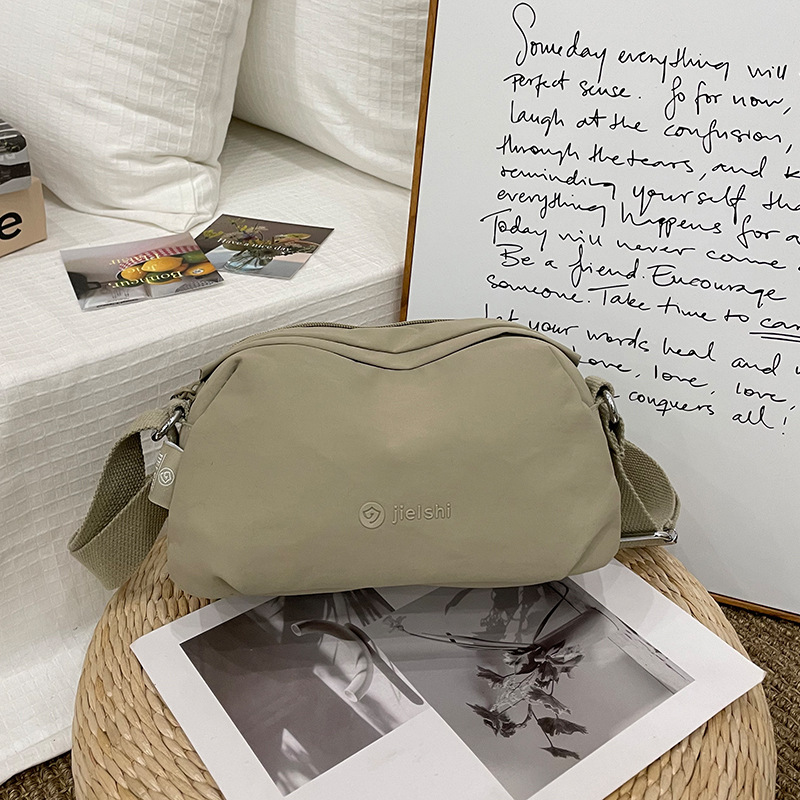 Someday everything will
perfect sense. So for now,
laugh at the confusion,
through the tears, and k
reminding yourself tha
everything happens for a
Today will never come a
Be a friend. Encourage
someone. Take time to car
Let your words heal and w
love, love, love,
conquers all!
Bonheur
Plaisir
Joie
Bonheurs
Have a nice day
e
jielshi